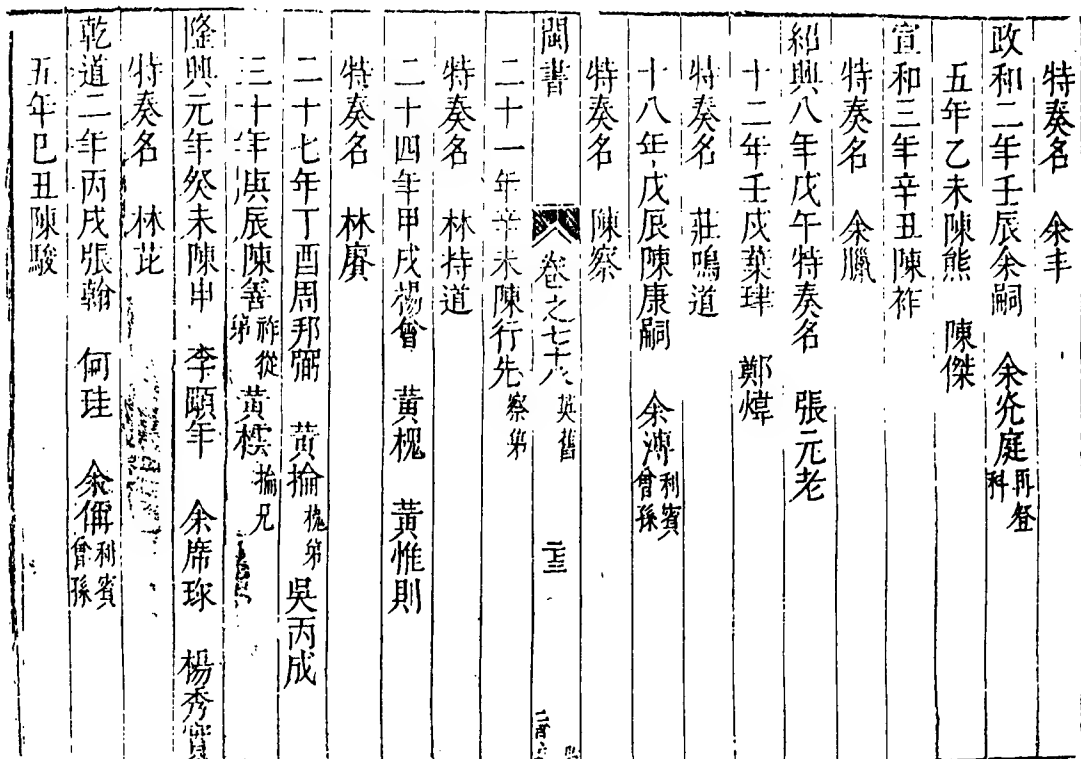 特奏名　余丰
政和二年壬辰余嗣　余兊庭再登科
五年乙未陳熊　陳傑
宣和三年辛丑陳祚
特奏名　余臘
紹興八年戊午特奏名　張元老
十二年壬戌葉琿　鄭煒
特奏名　莊鳴道
十八年戊辰陳康嗣　余溥利賓曾孫
特奏名　陳察
閩書　卷之七十八　英舊
二十一年辛未陳行先察弟
特奏名　林持道
二十四年甲戌楊會　黃槐　黃惟則
特奏名　林賡
二十七年丁酉周邦弼　黃掄槐弟　吳丙成
三十年庚辰陳善祚從弟　黃掄兄
隆興元年癸未陳申　李頤年　余席珎　楊秀實
特奏名　林芘
乾道二年丙戌張翰　何珪　余偁利賓曾孫
五年己丑陳駿